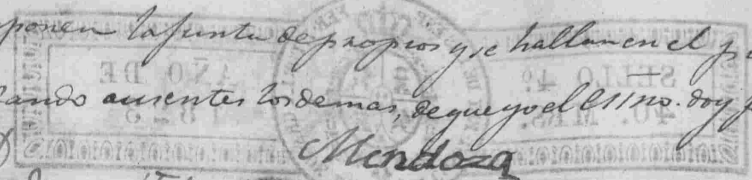 ponen la junta de propios y se hallan en el p
tando ausentes los demas, de que yo el Essno. doy f
Mendoza
SELLO 4º
40. MRS.
AÑO DE